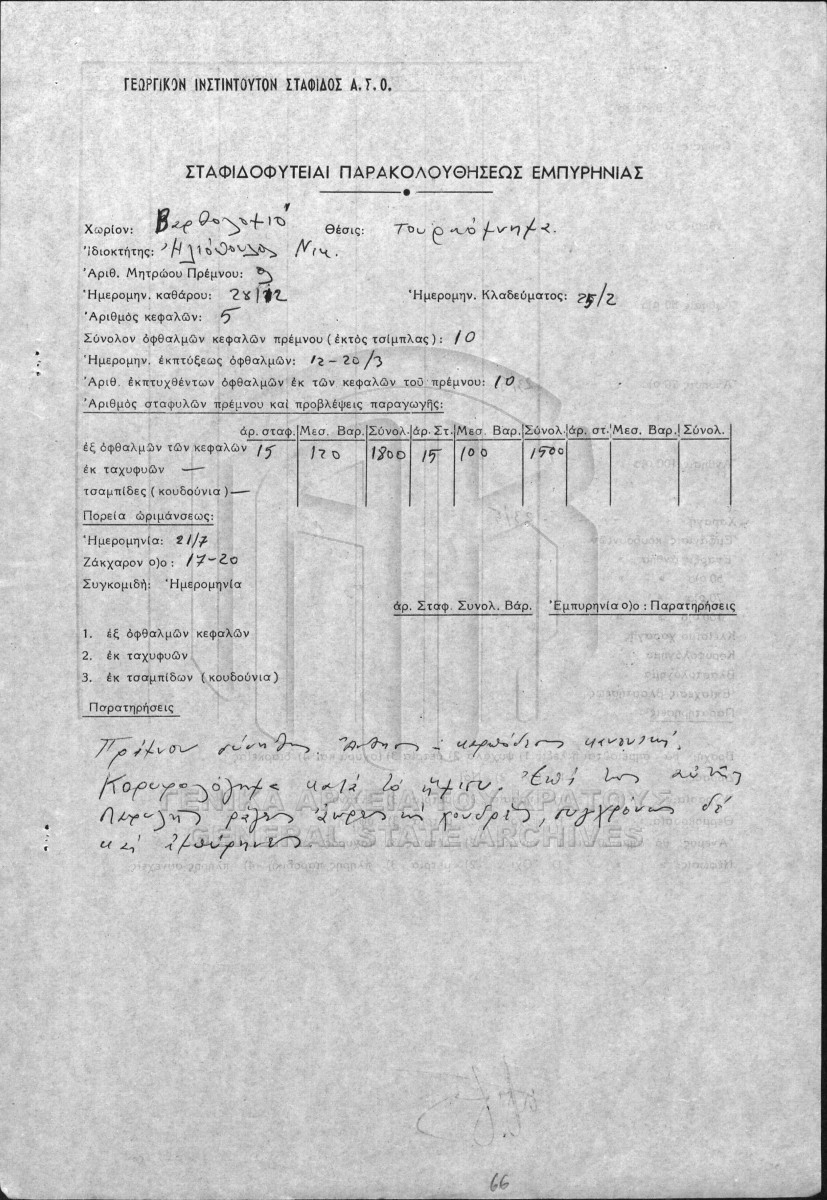 ΓΕΩΡΓΙΚΟΝ ΙΝΣΤΙΝΤΟΥΤΟΝ ΣΤΑΦΙΔΟΣ Α.Σ.Ο.
ΣΤΑΦΙΔΟΦΥΤΕΙΑΙ ΠΑΡΑΚΟΛΟΥΘΗΣΕΩΣ ΕΜΠΥΡΗΝΙΑΣ
Χωρίον: Βαρθολομιό Θέσις: Τουρκόμνημα.
Ἰδιοκτήτης: Ἠλιόπουλος Νικ.
Ἀριθ. Μητρώου Πρέμνου: 9
Ἡμερομην. καθάρου: 28/12 Ἡμερομην. Κλαδεύματος: 25/2
Ἀριθμὸς κεφαλῶν: 5
Σύνολον ὀφθαλμῶν κεφαλῶν πρέμνου (ἐκτὸς τσίμπλας): 10
Ἡμερομην. ἐκπτύξεως ὀφθαλμῶν: 12-20/3
Ἀριθ. ἐκπτυχθέντων ὀφθαλμῶν ἐκ τῶν κεφαλῶν τοῦ πρέμνου: 10
Ἀριθμὸς σταφυλῶν πρέμνου καὶ προβλέψεις παραγωγῆς:
ἀρ. σταφ. Μεσ. Βαρ. Σύνολ. ἀρ. Στ. Μεσ. Βαρ. Σύνολ. ἀρ. στ. Μεσ. Βαρ. Σύνολ.
ἐξ ὀφθαλμῶν τῶν κεφαλῶν 15 120 1800 15 100 1500
ἐκ ταχυφυῶν —
τσαμπίδες (κουδούνια) —
Πορεία ὡριμάνσεως:
Ἡμερομηνία: 21/7
Ζάκχαρον ο)ο: 17-20
Συγκομιδὴ: Ἡμερομηνία
ἀρ. Σταφ. Συνολ. Βάρ. Ἐμπυρηνία ο)ο: Παρατηρήσεις
1. ἐξ ὀφθαλμῶν κεφαλῶν
2. ἐκ ταχυφυῶν
3. ἐκ τσαμπίδων (κουδούνια)
Παρατηρήσεις
Πρέμνον σύνηθες. Ἄνθησις - καρπόδεσις κανονική.
Κορυφολόγημα κατὰ τὸ ἥμισυ. Ἐπὶ τῆς αὐτῆς
ράγες καὶ χονδρές, συγχρόνως δὲ
καὶ ἐμπύρηνες.
ΓΕΝΙΚΑ ΑΡΧΕΙΑ ΤΟΥ ΚΡΑΤΟΥΣ
GENERAL STATE ARCHIVES
66